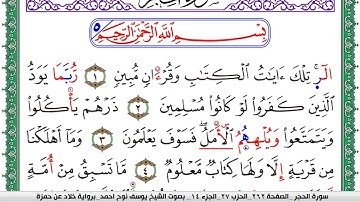 بِسْمِ اللَّهِ الرَّحْمَٰنِ الرَّحِيمِ
الٓر تِلْكَ ءَايَٰتُ الْكِتَٰبِ وَقُرْءَانٍ مُّبِينٍ ١ رُّبَّمَا يَوَدُّ
الَّذِينَ كَفَرُوا لَوْ كَانُوا مُسْلِمِينَ ٢ ذَرْهُمْ يَأْكُلُوا
وَيَتَمَتَّعُوا وَيُلْهِهُمُ الْأَمَلُ فَسَوْفَ يَعْلَمُونَ ٣ وَمَا أَهْلَكْنَا
مِن قَرْيَةٍ إِلَّا وَلَهَا كِتَابٌ مَّعْلُومٌ ٤ مَّا تَسْبِقُ مِنْ أُمَّةٍ
سورة الحجر _ الصفحة ٢٦٢ _ الحزب ٢٧ _ الجزء ١٤ _ بصوت الشيخ يوسف نوح احمد _ برواية خلاد عن حمزة